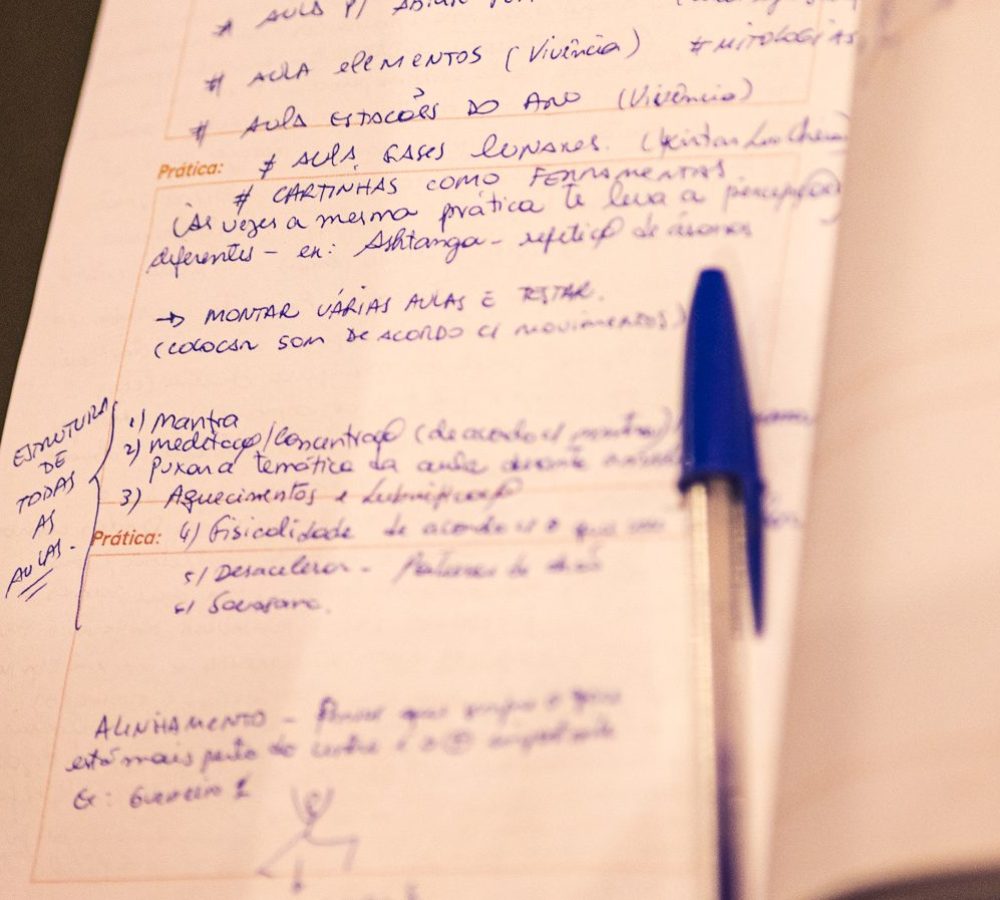 # AULA P/
# AULA ELEMENTOS (Vivência) # MITOLOGIAS
# AULA ESTAÇÕES DO ANO (Vivência)
Prática: # AULA FASES LUNARES.
# CARTINHAS COMO FERRAMENTAS
(Às vezes a mesma prática te leva a percepções
diferentes - ex: Ashtanga - repetição de ásanas
→ MONTAR VÁRIAS AULAS E TESTAR.
(COLOCAR SOM DE ACORDO C/ MOVIMENTOS)
ESTRUTURA
DE
TODAS
AS
AULAS -
1) Mantra
2) meditação/concentração (de acordo c/
Puxar a temática da aula durante
3) Aquecimentos e Lubrificação
Prática: 4) Fisicalidade de acordo c/ o que
5) Desacelerar -
6) Savasana.
ALINHAMENTO - Pensar que sempre o
está mais perto do centro é o
Ex: Guerreiro 1